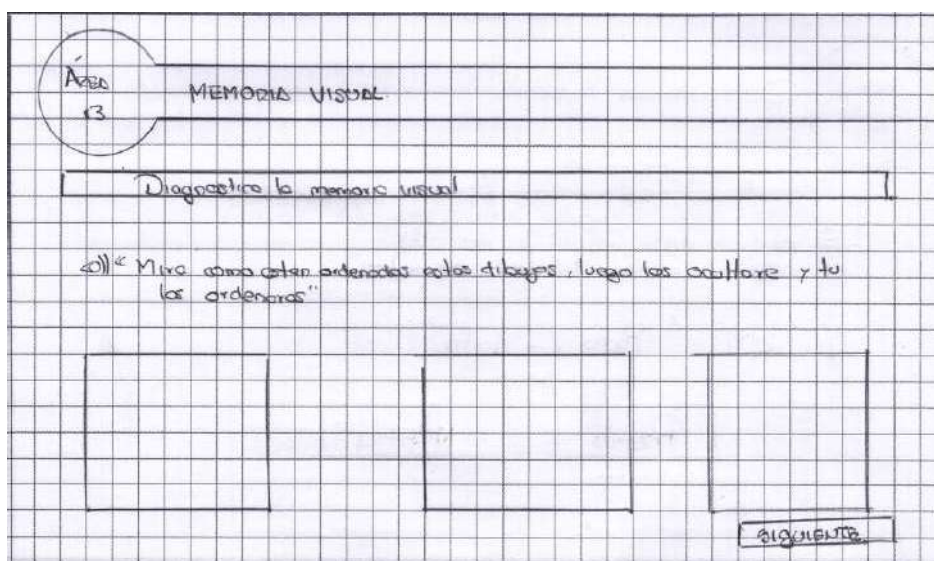 ÁREA
13
MEMORIA VISUAL
Diagnostico la memoria visual
"Mira como estan ordenados estos dibujos, luego los ocultare y tu
los ordenaras"
SIGUIENTE